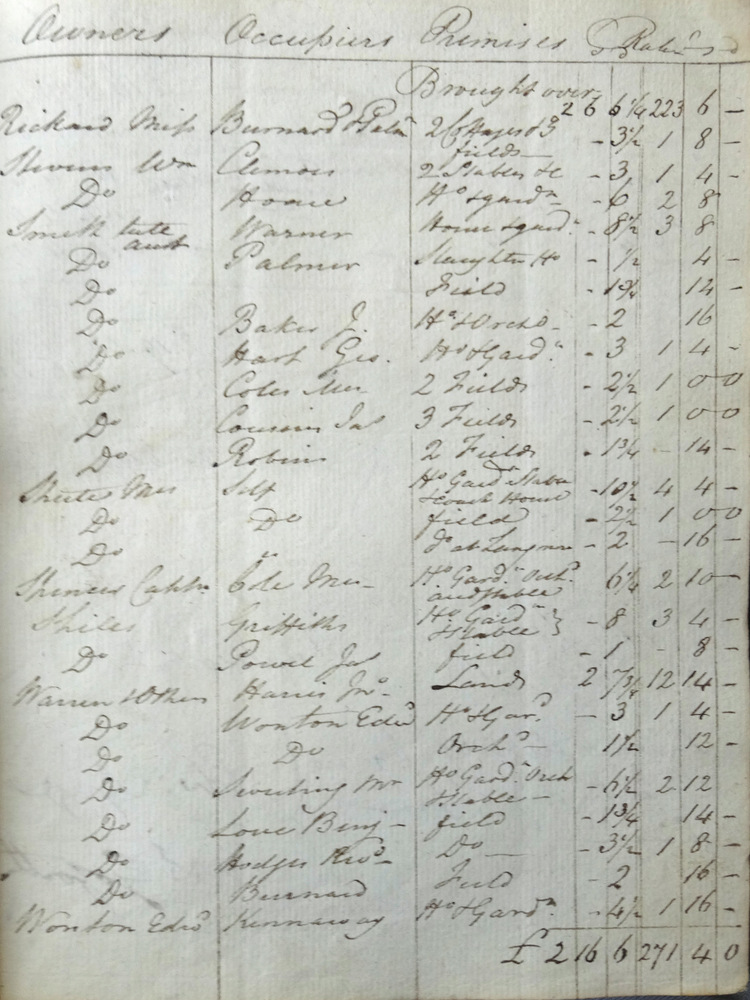 Owners Occupiers Premises Rate
Brought over 2 6 6¼ 223 6 -
Rickard Miss Burnard & 2 & 3 - 3½ 1 8 -
fields
Stevens Wm Clemow 2 Stables &c - 3 1 4 -
Do Hoare Ho & gardn - 6 2 8
Smith late Warner House & gard.n - 8½ 3 8
Do Palmer Slaughter Ho - ½ 4 -
Do Field - 1¾ 14 -
Do Baker J. Ho & Orchd - 2 16
Do Hart Geo. Ho & Gard.n - 3 1 4 -
Do Coles 2 Fields - 2½ 1 0 0
Do Cousins Jas 3 Fields - 2½ 1 0 0
Do Robins 2 Fields - 1¾ - 14 -
Shute Mrs Self Ho Gardn Stable - 10½ 4 4 -
& Coach House
Do Do field - 2½ 1 0 0
Do Do at - 2 - 16 -
Spencer Captn Cole Mrs - Ho Gard.n Orchd 6¼ 2 10 -
and stable
Shiles Griffiths Ho Gardn - 8 3 4 -
& Stable
Do Powel Jas field - 1 - 8 -
Warren & Others Harris Jno - Lands 2 7¾ 12 14 -
Do Wonton Edwd Ho & Gar.n - 3 1 4 -
Do Do Orchd - 1½ 12 -
Do Sweeting Mr Ho Gard.n Orch - 6½ 2 12
& Stable -
Do Love Benj - field - 1¾ 14 -
Do Hodges Do - 3½ 1 8 -
Do Burnard Field - 2 16 -
Wonton Edwd Kennaway Ho & Gardn - 4½ 1 16 -
£ 2 16 6 271 4 0